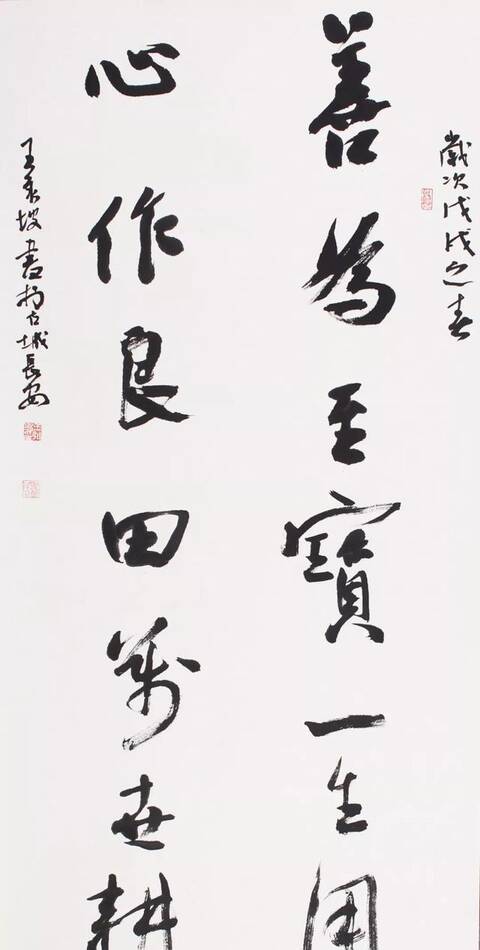 歲次戊戌之春
善為至寶一生用
心作良田萬世耕
王來坡書於古城長安